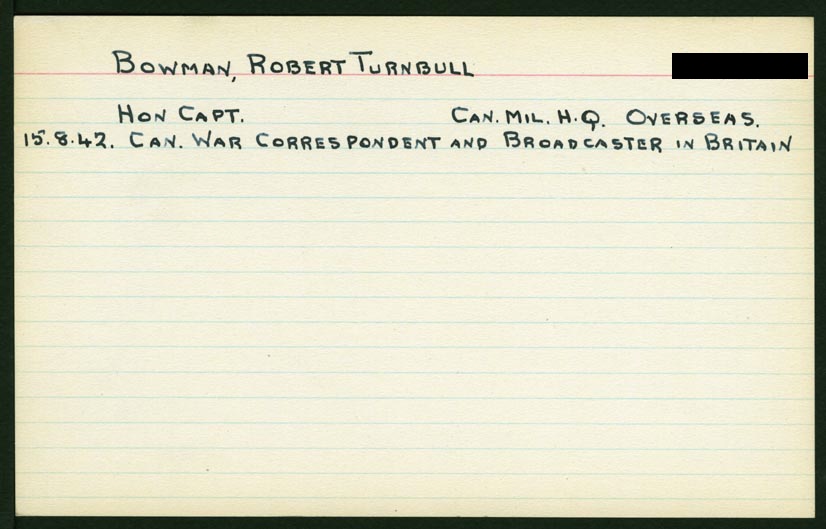 BOWMAN, ROBERT TURNBULL
HON CAPT. CAN. MIL. H.Q. OVERSEAS.
15.8.42. CAN. WAR CORRESPONDENT AND BROADCASTER IN BRITAIN